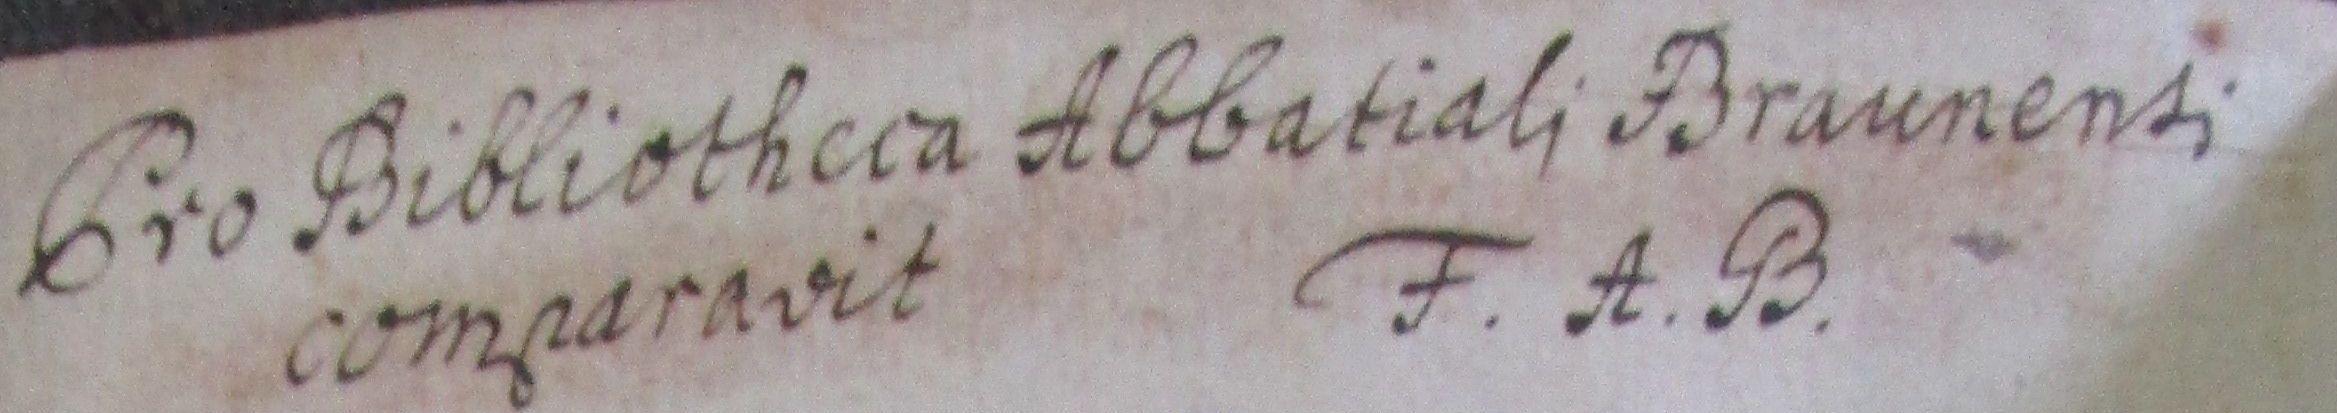 Pro Bibliotheca Abbatialj Braunensj
comparavit F. A. B.